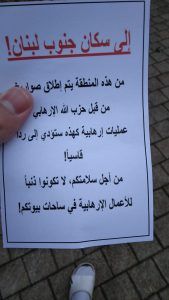 إلى سكان جنوب لبنان!
من هذه المنطقة يتم إطلاق
من قبل حزب الله الإرهابي
عمليات إرهابية كهذه ستؤدي إلى
قاسياً!
من أجل سلامتكم، لا تكونوا ذنباً
للأعمال الإرهابية في ساحات بيوتكم!